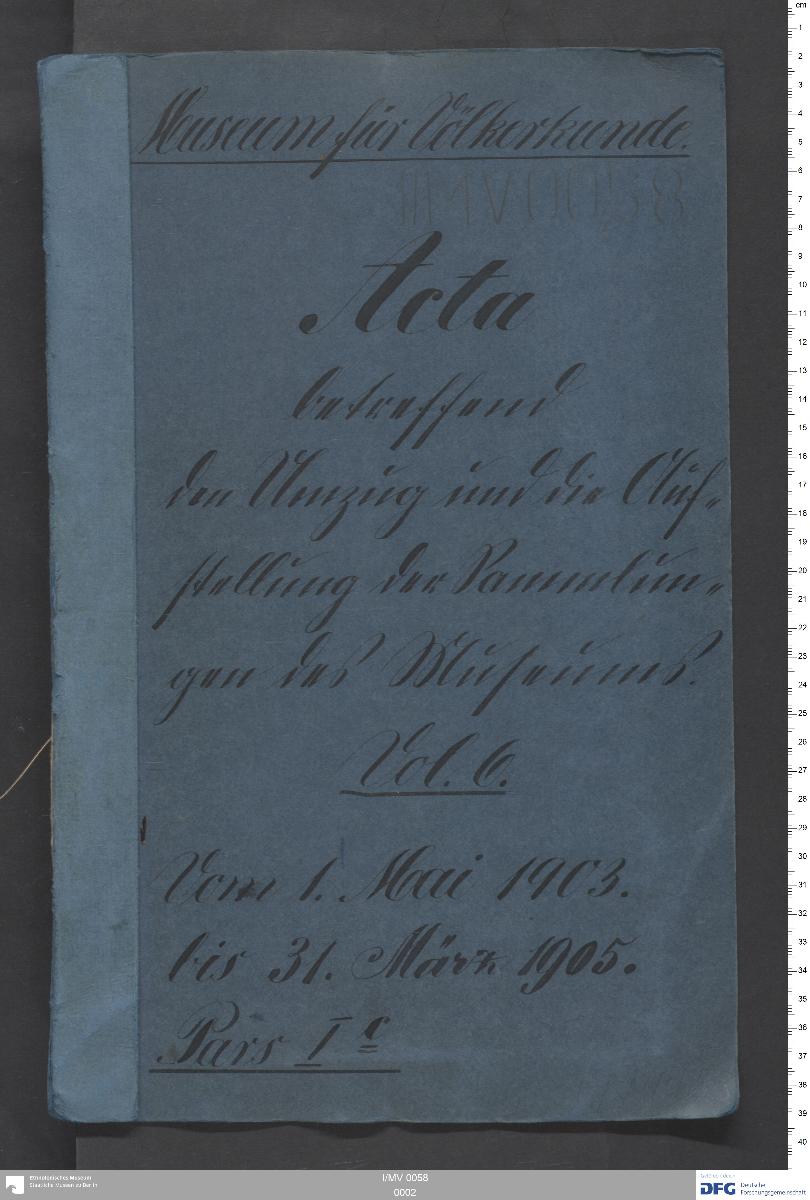 Museum für Völkerkunde.
I/MV 0058
Acta
betreffend
den Umzug und die Auf-
stellung der Sammlun-
gen des Museums.
Vol. 6.
Vom 1. Mai 1903.
bis 31. März 1905.
Pars I c
cm
1
2
3
4
5
6
7
8
9
10
11
12
13
14
15
16
17
18
19
20
21
22
23
24
25
26
27
28
29
30
31
32
33
34
35
36
37
38
39
40
Ethnologisches Museum
Staatliche Museen zu Berlin
I/MV 0058
0002
Gefördert durch
DFG Deutsche
Forschungsgemeinschaft